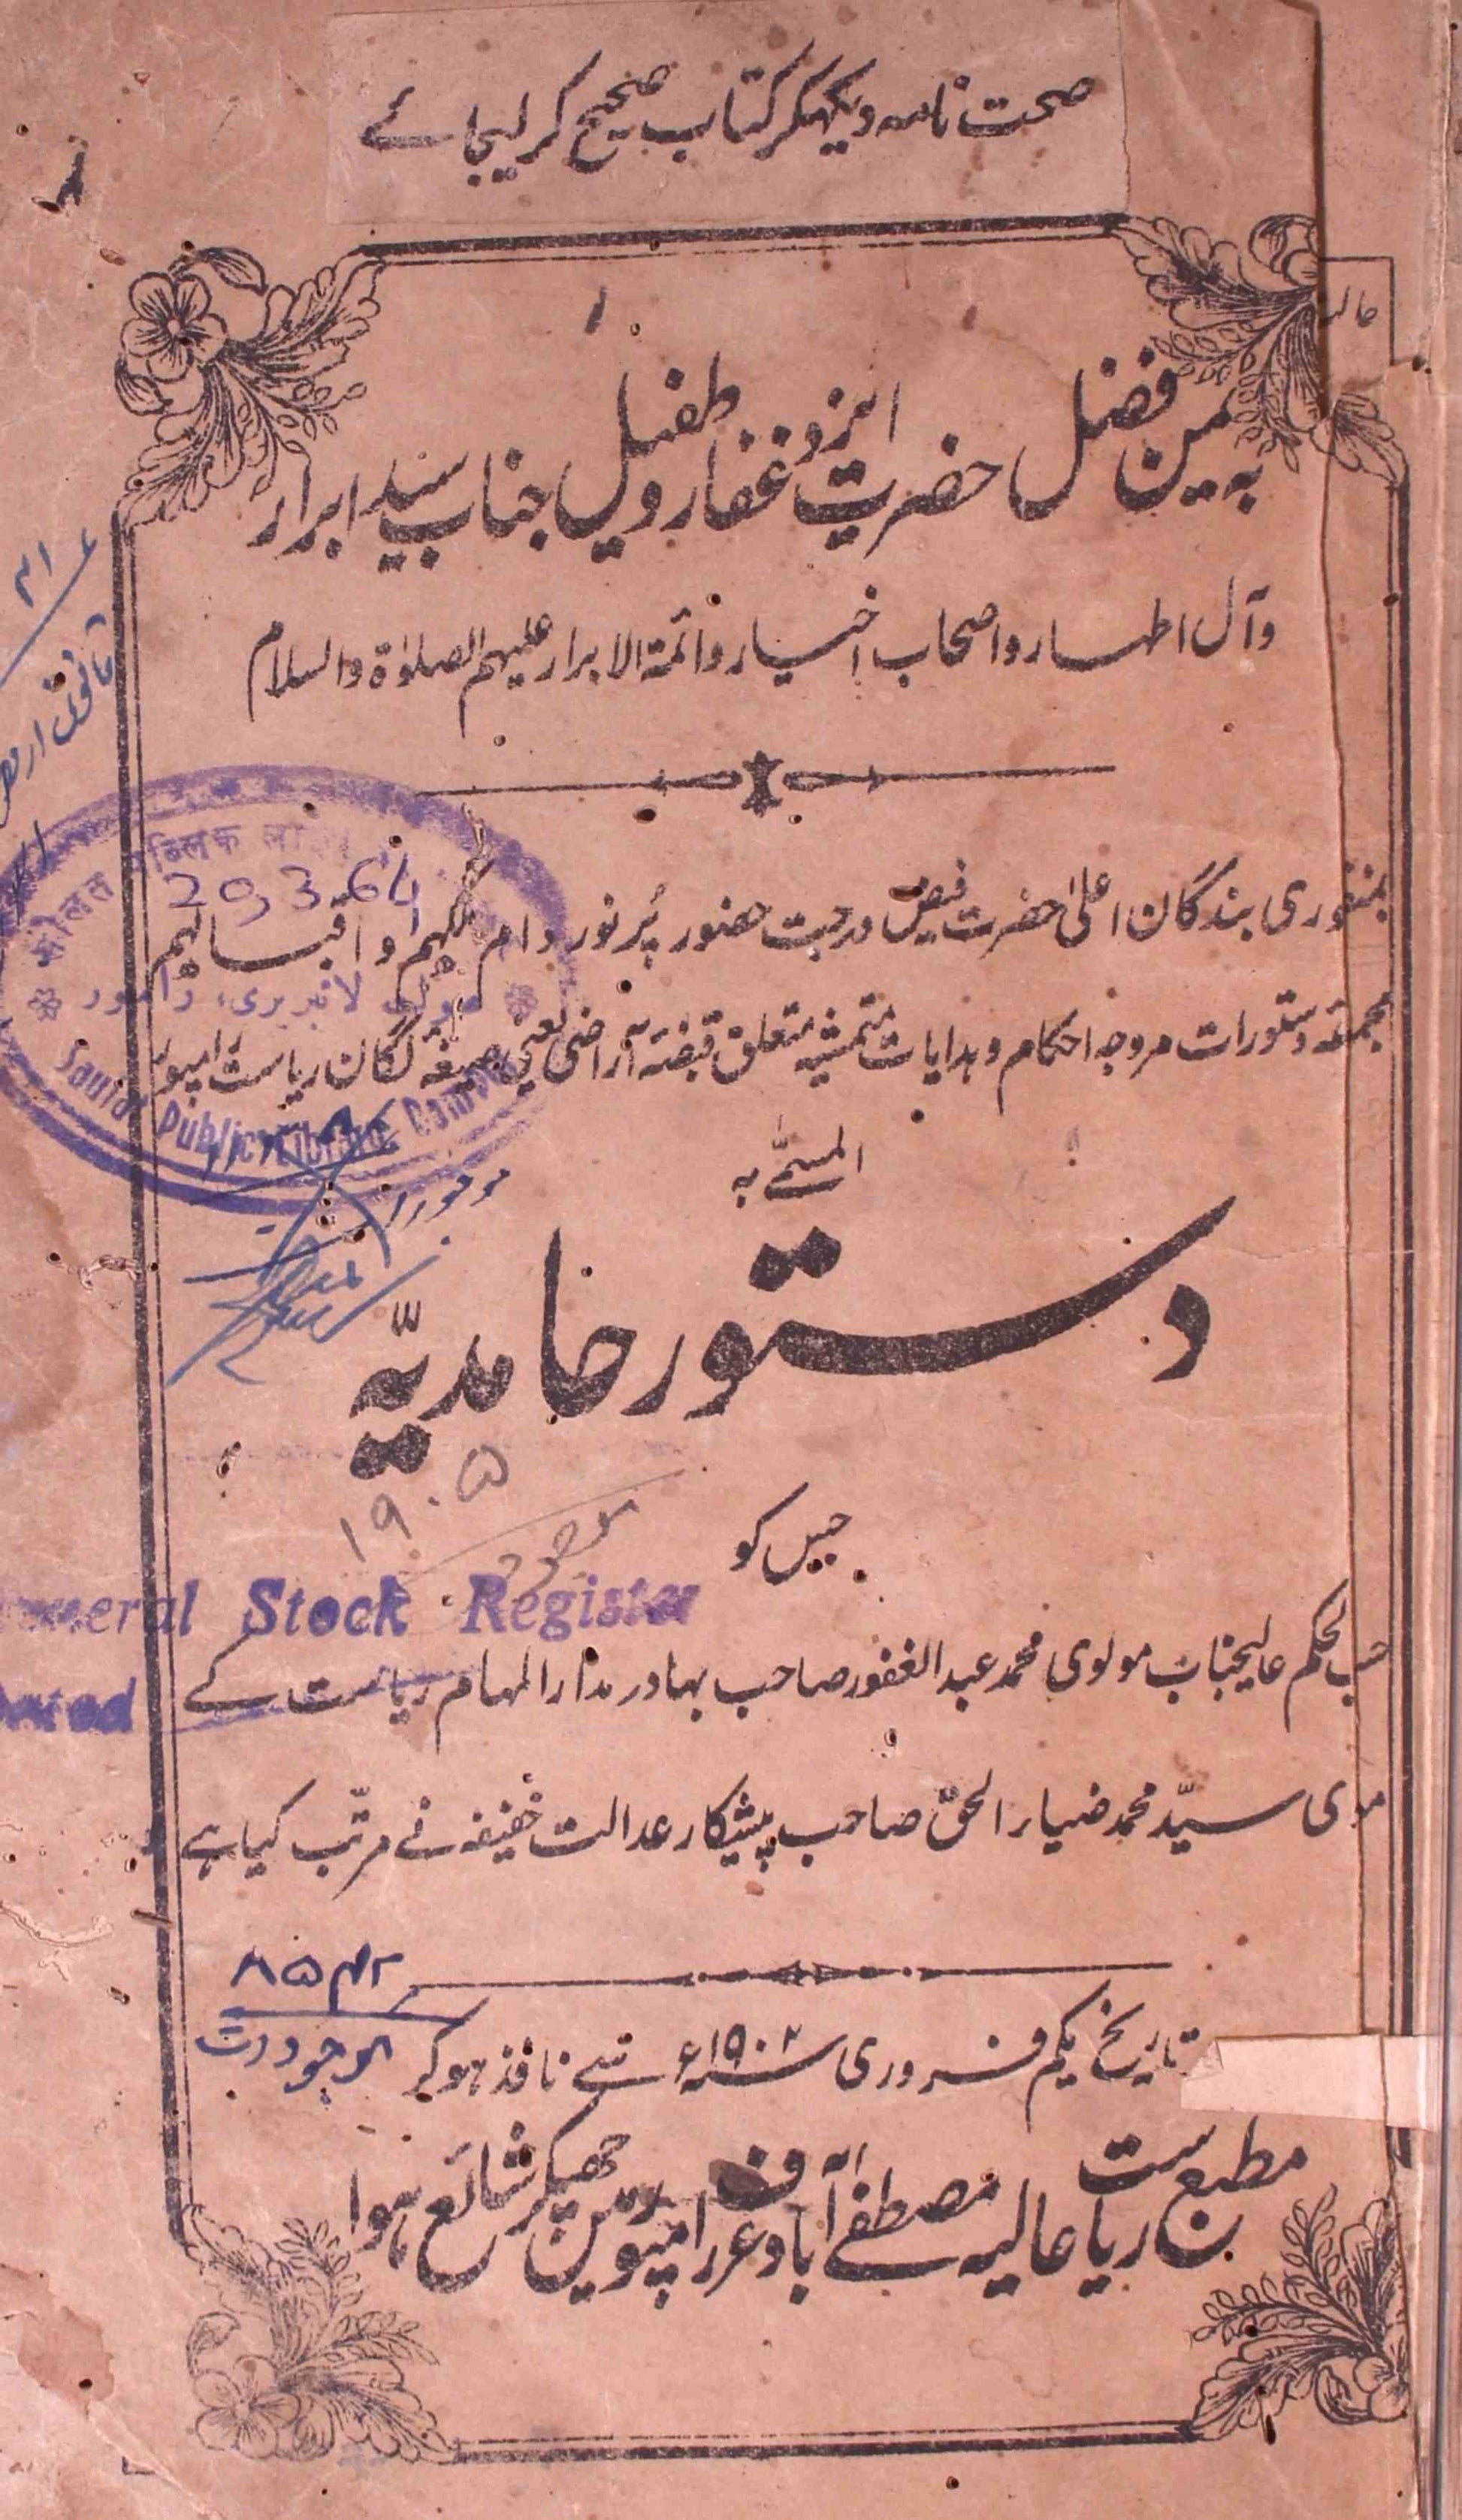 صحت نامہ دیکھکر کتاب صحیح کر لیجائے
بہ یمن فضل حضرت ایزد غفار و طفیل جناب سید ابرار
و آل اطہار و اصحاب اخیار و ائمۃ الابرار علیہم الصلوٰۃ والسلام
بمنظوری بندگان اعلیٰ حضرت فیض درجت حضور پُر نور دام ملکہم و اقبالہم
مجموعہ دستورات مروجہ احکام و ہدایات متعلق قبضہ آراضی یعنی صیغہ لگان ریاست رامپور
المسمّٰے بہ
دستور حامدیّہ
۱۹۰۵
جس کو
حسب الحکم عالیجناب مولوی محمد عبد الغفور صاحب بہادر مدار المہام ریاست کے
سیّد محمد ضیاء الحق صاحب پیشکار عدالت خفیفہ نے مرتّب کیا ہے
تاریخ یکم فروری ۱۹۰۲ء سے نافذ ہو کر
مطبع ریاست عالیہ مصطفےٰ آباد عرف رامپور میں چھپکر شائع ہوا
पब्लिक
20.3.64
لائبریری، رامپور
Saulat Public Library Rampur
موجودات
General Stock Register
Dated
۸۵۴۲